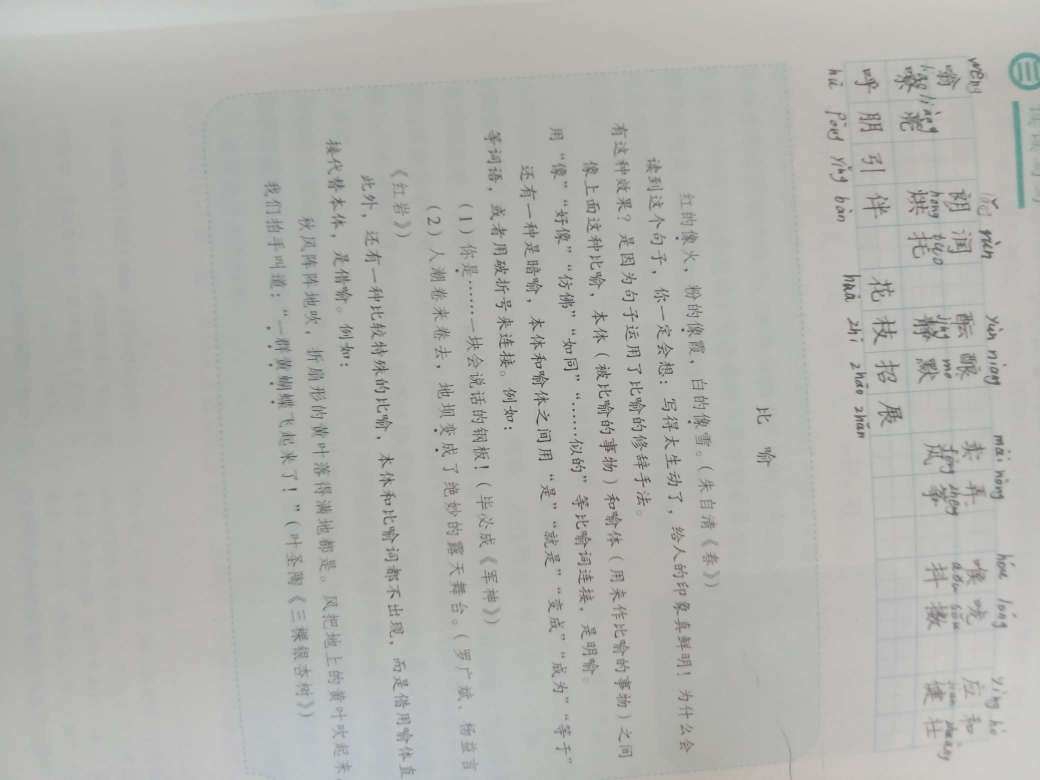 读读写写
wēng yùn yùn niàng mài nòng hóu lóng yìng hè
嗡 朗润 酝酿 卖弄 喉咙 应和
hōng tuō jìng mò fēng zheng dǒu sǒu jiàn zhuàng
嘹亮 烘托 静默 风筝 抖擞 健壮
呼朋引伴 花枝招展
hū péng yǐn bàn huā zhī zhāo zhǎn
比 喻
红的像火，粉的像霞，白的像雪。（朱自清《春》）
读到这个句子，你一定会想：写得太生动了，给人的印象真鲜明！为什么会
有这种效果？是因为句子运用了比喻的修辞手法。
像上面这种比喻，本体（被比喻的事物）和喻体（用来作比喻的事物）之间
用“像”“好像”“仿佛”“如同”“……似的”等比喻词连接，是明喻。
还有一种是暗喻，本体和喻体之间用“是”“就是”“变成”“成为”“等于”
等词语，或者用破折号来连接。例如：
（1）你是……一块会说话的钢板！（毕必成《军神》）
（2）人潮卷来卷去，地坝变成了绝妙的露天舞台。（罗广斌、杨益言
《红岩》）
此外，还有一种比较特殊的比喻，本体和比喻词都不出现，而是借用喻体直
接代替本体，是借喻。例如：
秋风阵阵地吹，折扇形的黄叶落得满地都是。风把地上的黄叶吹起来，
我们拍手叫道：“一群黄蝴蝶飞起来了！”（叶圣陶《三棵银杏树》）